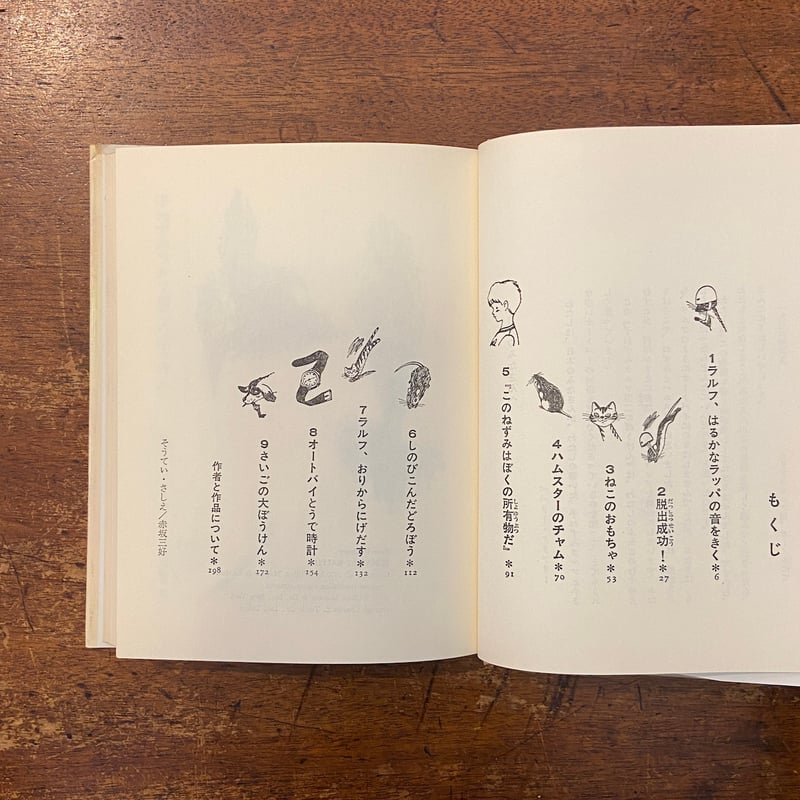 もくじ
1ラルフ、はるかなラッパの音をきく＊6
2脱出成功！＊27
3ねこのおもちゃ＊53
4ハムスターのチャム＊70
5『このねずみはぼくの所有物だ』＊91
6しのびこんだどろぼう＊112
7ラルフ、おりからにげだす＊132
8オートバイとうで時計＊154
9さいごの大ぼうけん＊172
作者と作品について＊198
そうてい・さしえ／赤坂三好